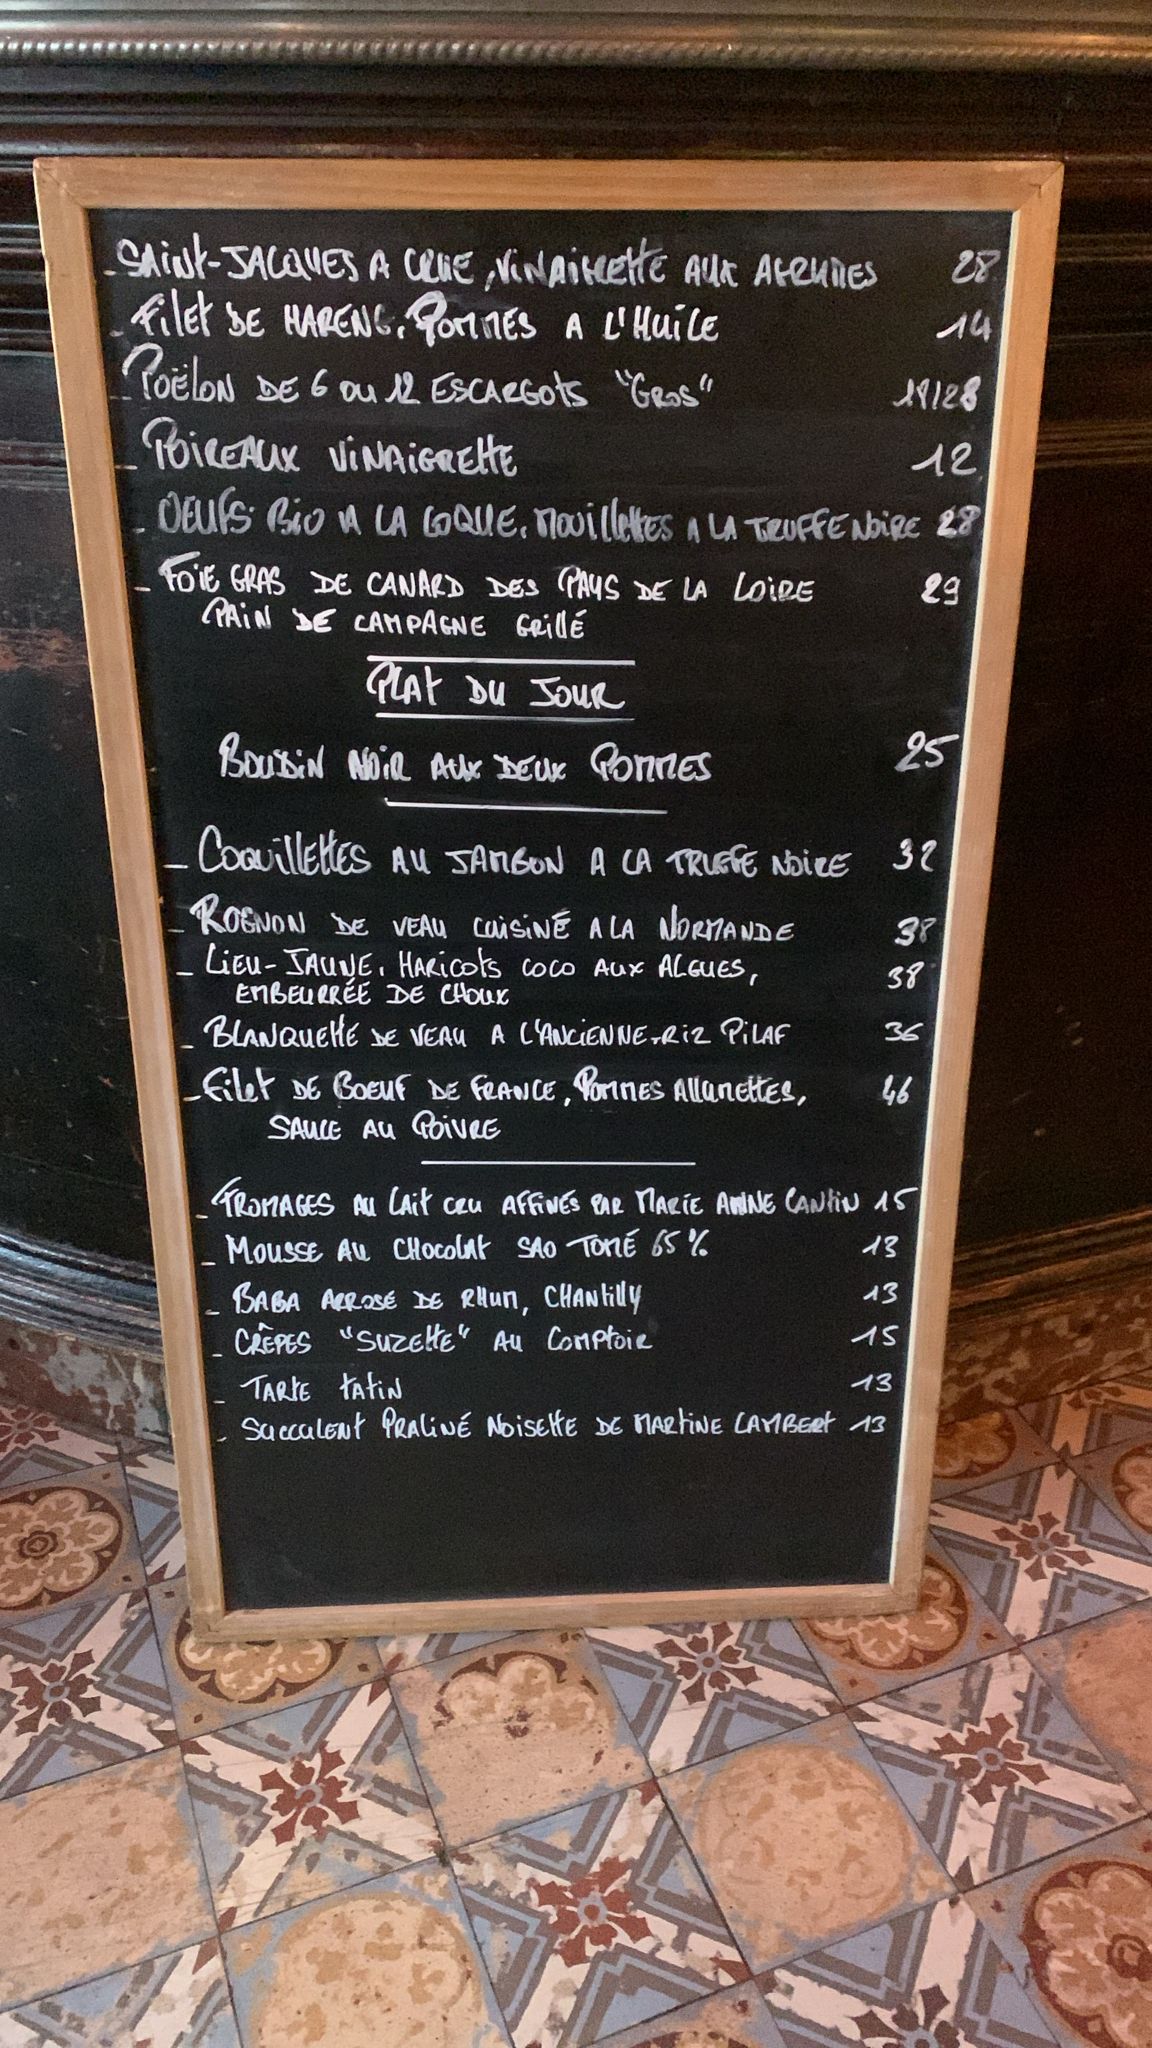 - SAINT-JACQUES A CRUE, VINAIGRETTE AUX AGRUMES 28
- FILET DE HARENG, POMMES A L'HUILE 14
- POËLON DE 6 OU 12 ESCARGOTS "GROS" 18/28
- POIREAUX VINAIGRETTE 12
- OEUFS BIO A LA COQUE, MOUILLETTES A LA TRUFFE NOIRE 28
- FOIE GRAS DE CANARD DES PAYS DE LA LOIRE 29
PAIN DE CAMPAGNE GRILLÉ
PLAT DU JOUR
BOUDIN NOIR AUX DEUX POMMES 25
- COQUILLETTES AU JAMBON A LA TRUFFE NOIRE 32
- ROGNON DE VEAU CUISINÉ A LA NORMANDE 38
- LIEU-JAUNE, HARICOTS COCO AUX ALGUES, 38
EMBEURRÉE DE CHOUX
- BLANQUETTE DE VEAU A L'ANCIENNE-RIZ PILAF 36
- FILET DE BOEUF DE FRANCE, POMMES ALLUMETTES, 46
SAUCE AU POIVRE
- FROMAGES AU LAIT CRU AFFINÉS PAR MARIE ANNE CANTIN 15
- MOUSSE AU CHOCOLAT SAO TOMÉ 65% 13
- BABA ARROSÉ DE RHUM, CHANTILLY 13
- CRÊPES "SUZETTE" AU COMPTOIR 15
- TARTE TATIN 13
- SUCCULENT PRALINÉ NOISETTE DE MARTINE LAMBERT 13